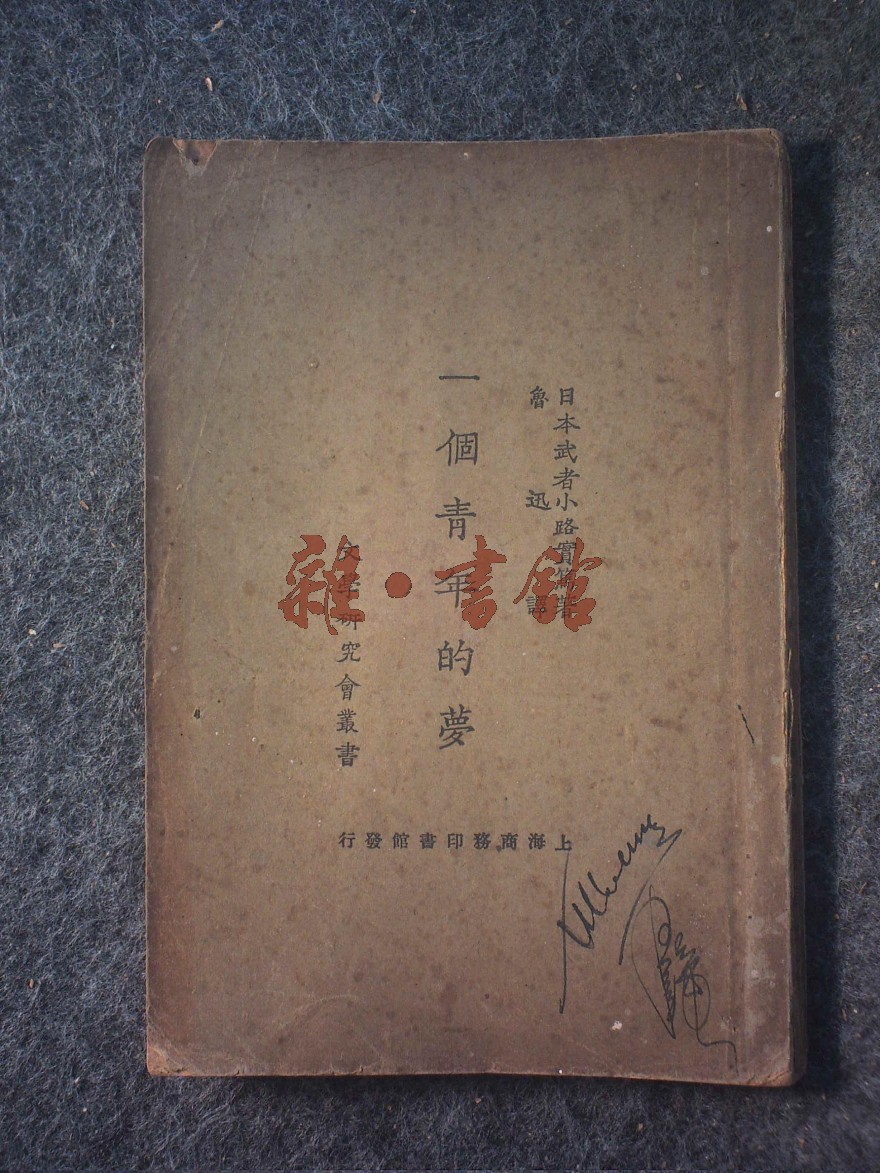 日本武者小路實篤著
魯迅譯
一個青年的夢
文學研究會叢書
上海商務印書館發行
雜·書館